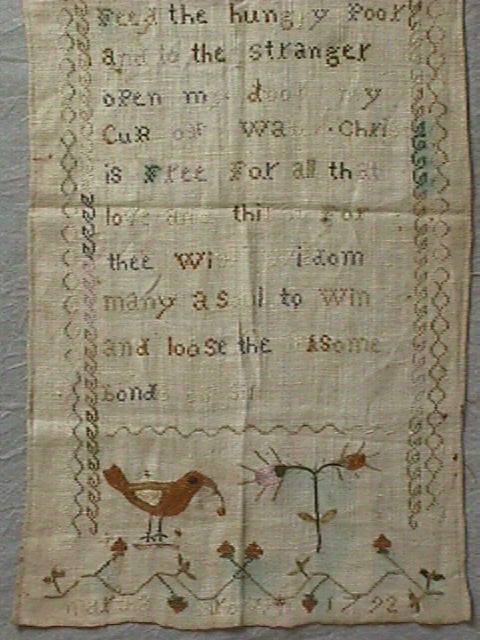 Feed the hungry Poor
and to the stranger
open my door my
Cup of Christ
is Free For all that
love and thirst For
thee With Wisdom
many a soul to Win
and loose the
bond
1792